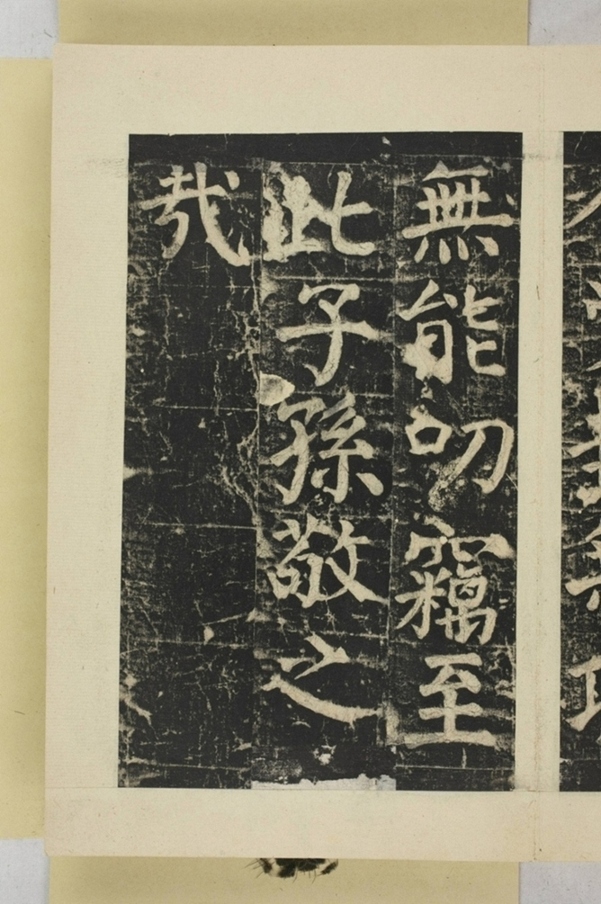 無能叨竊至
此子孫敬之
哉